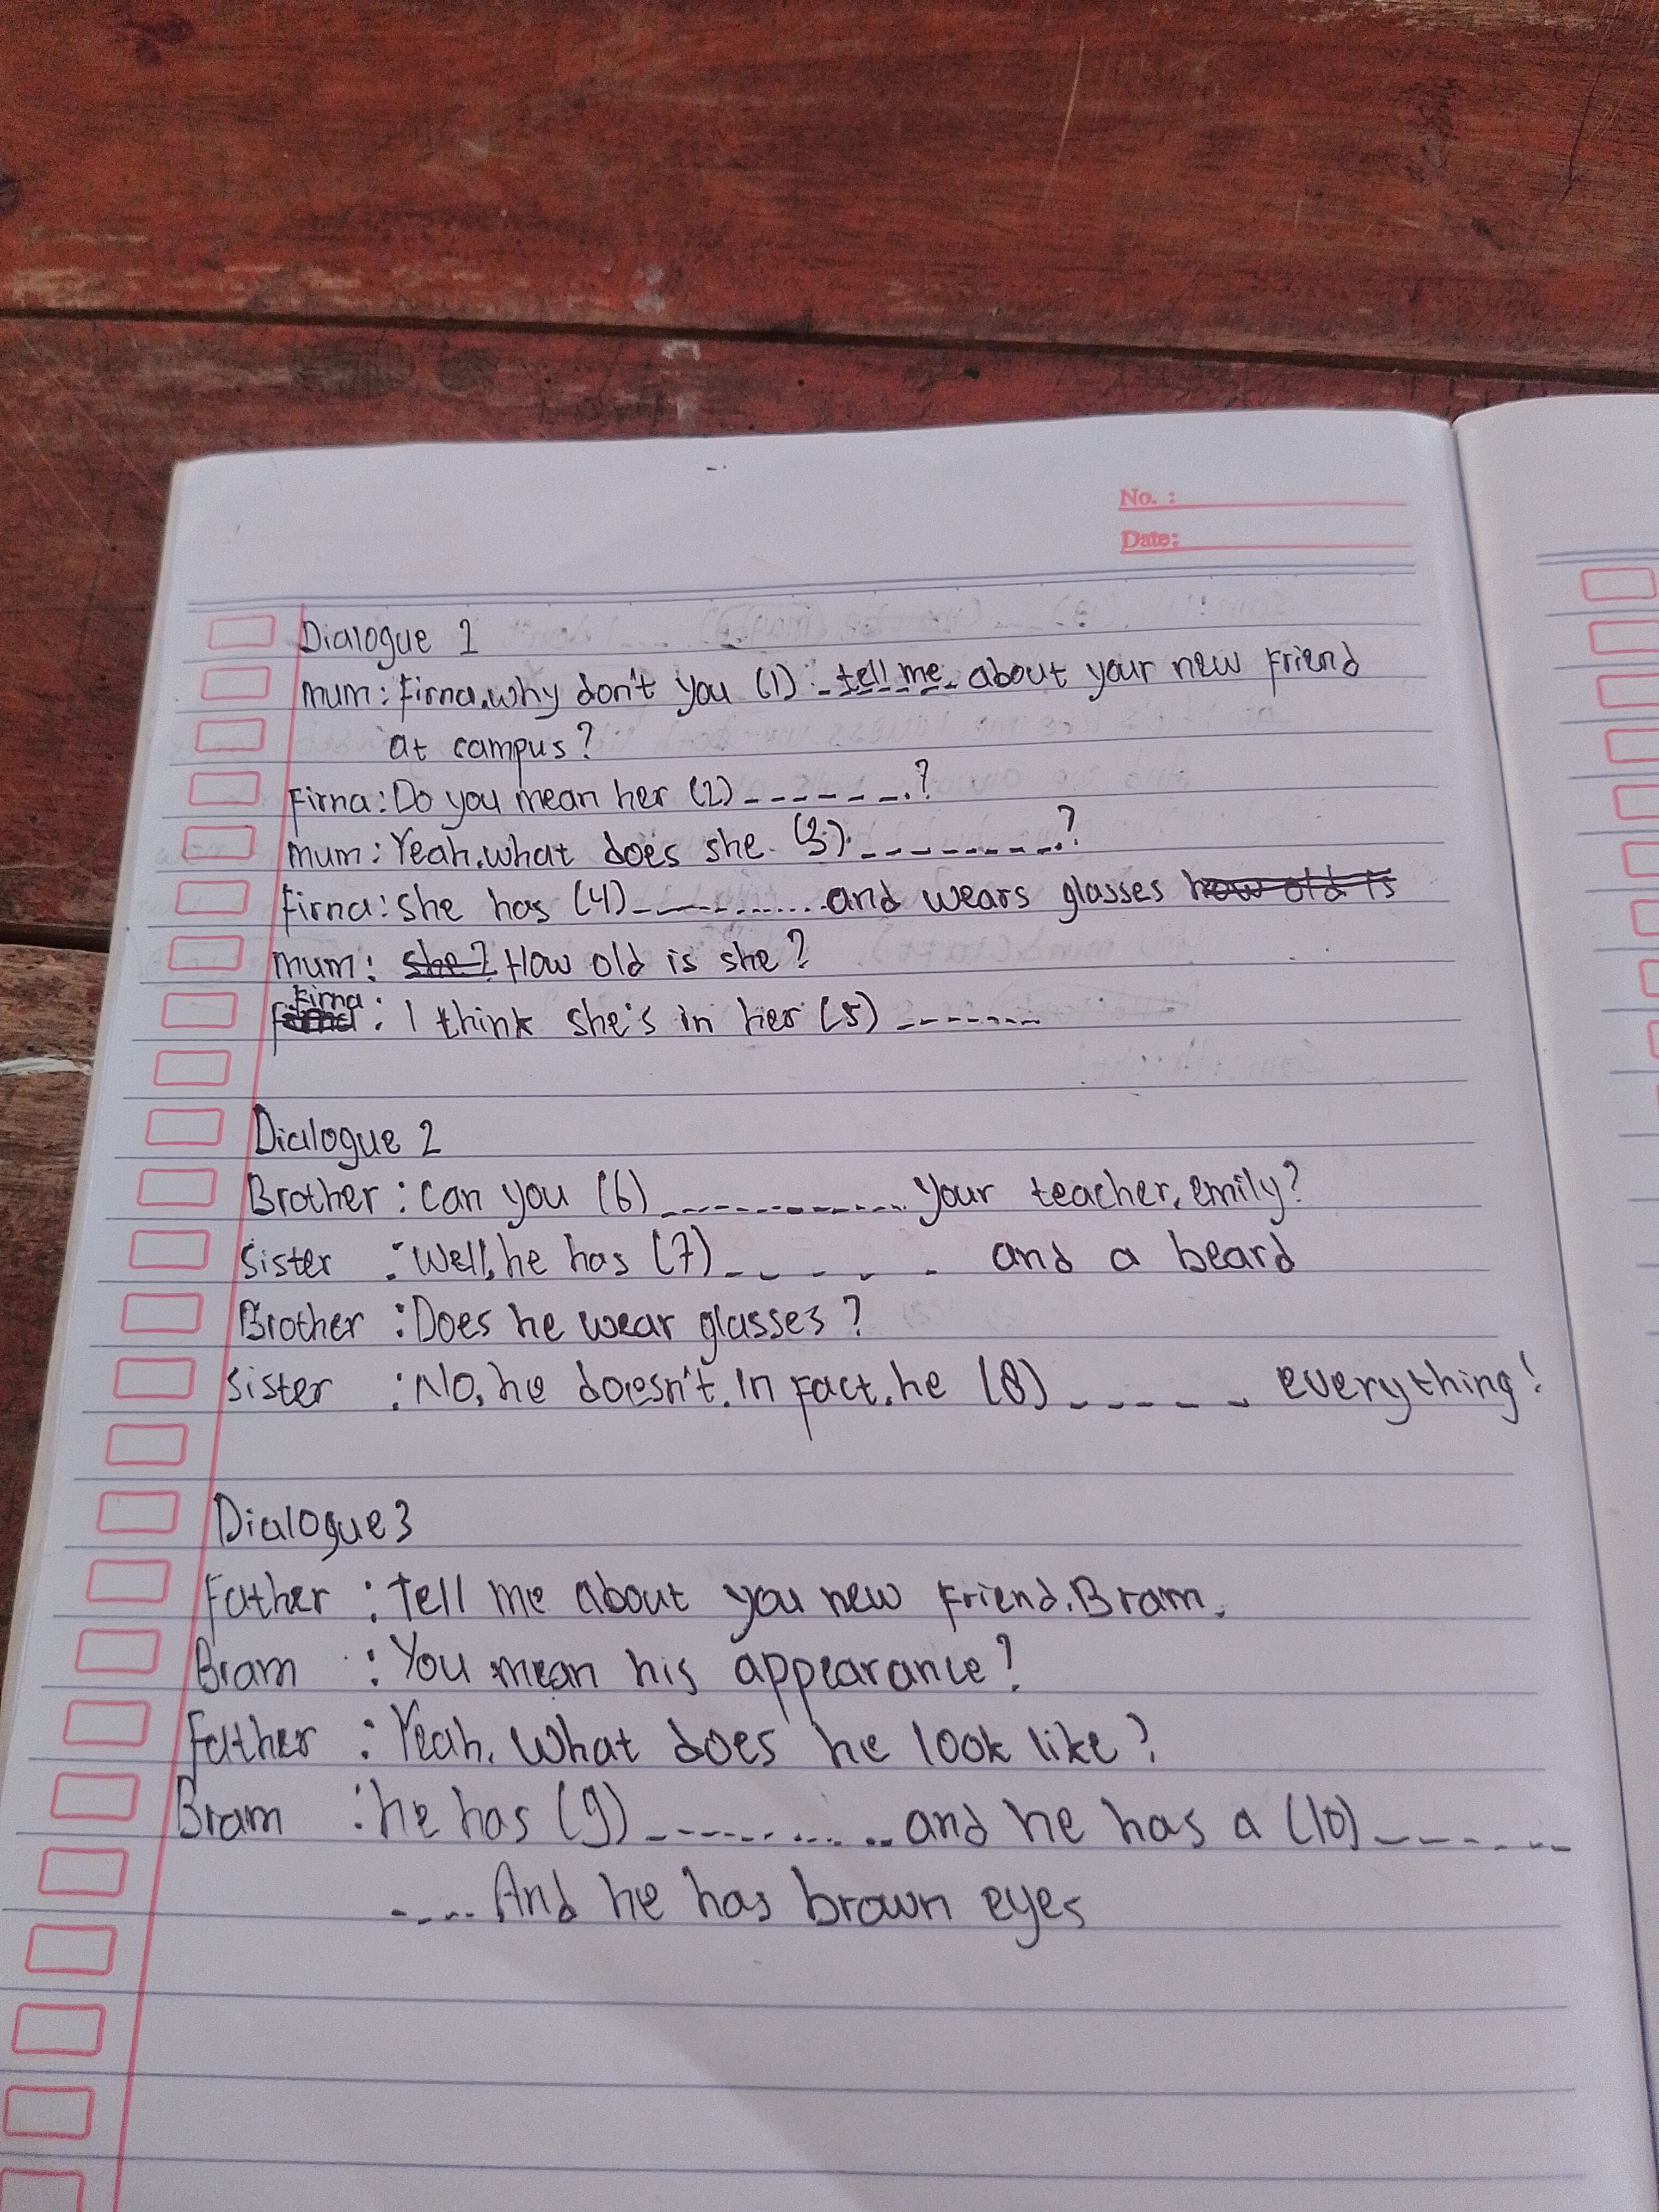 No. :
Date:
Dialogue 1
Mum: Firna, why don't you (1) tell me about your new friend
at campus?
Firna: Do you mean her (2) ------.?
Mum: Yeah. what does she (3) --------.?
Firna: she has (4) ----------- and wears glasses how old is
Mum: she? How old is she?
Firna: I think she's in her (5) --------
Dialogue 2
Brother : Can you (6) ------------- your teacher, emily?
Sister : Well, he has (7) - - - - - and a beard
Brother : Does he wear glasses?
Sister : No, he doesn't. In fact, he (8) ----- everything!
Dialogue 3
Father : Tell me about you new friend, Bram.
Bram : You mean his appearance?
Father : Yeah. What does he look like?
Bram : he has (9) ----------- and he has a (10) -------
---- And he has brown eyes